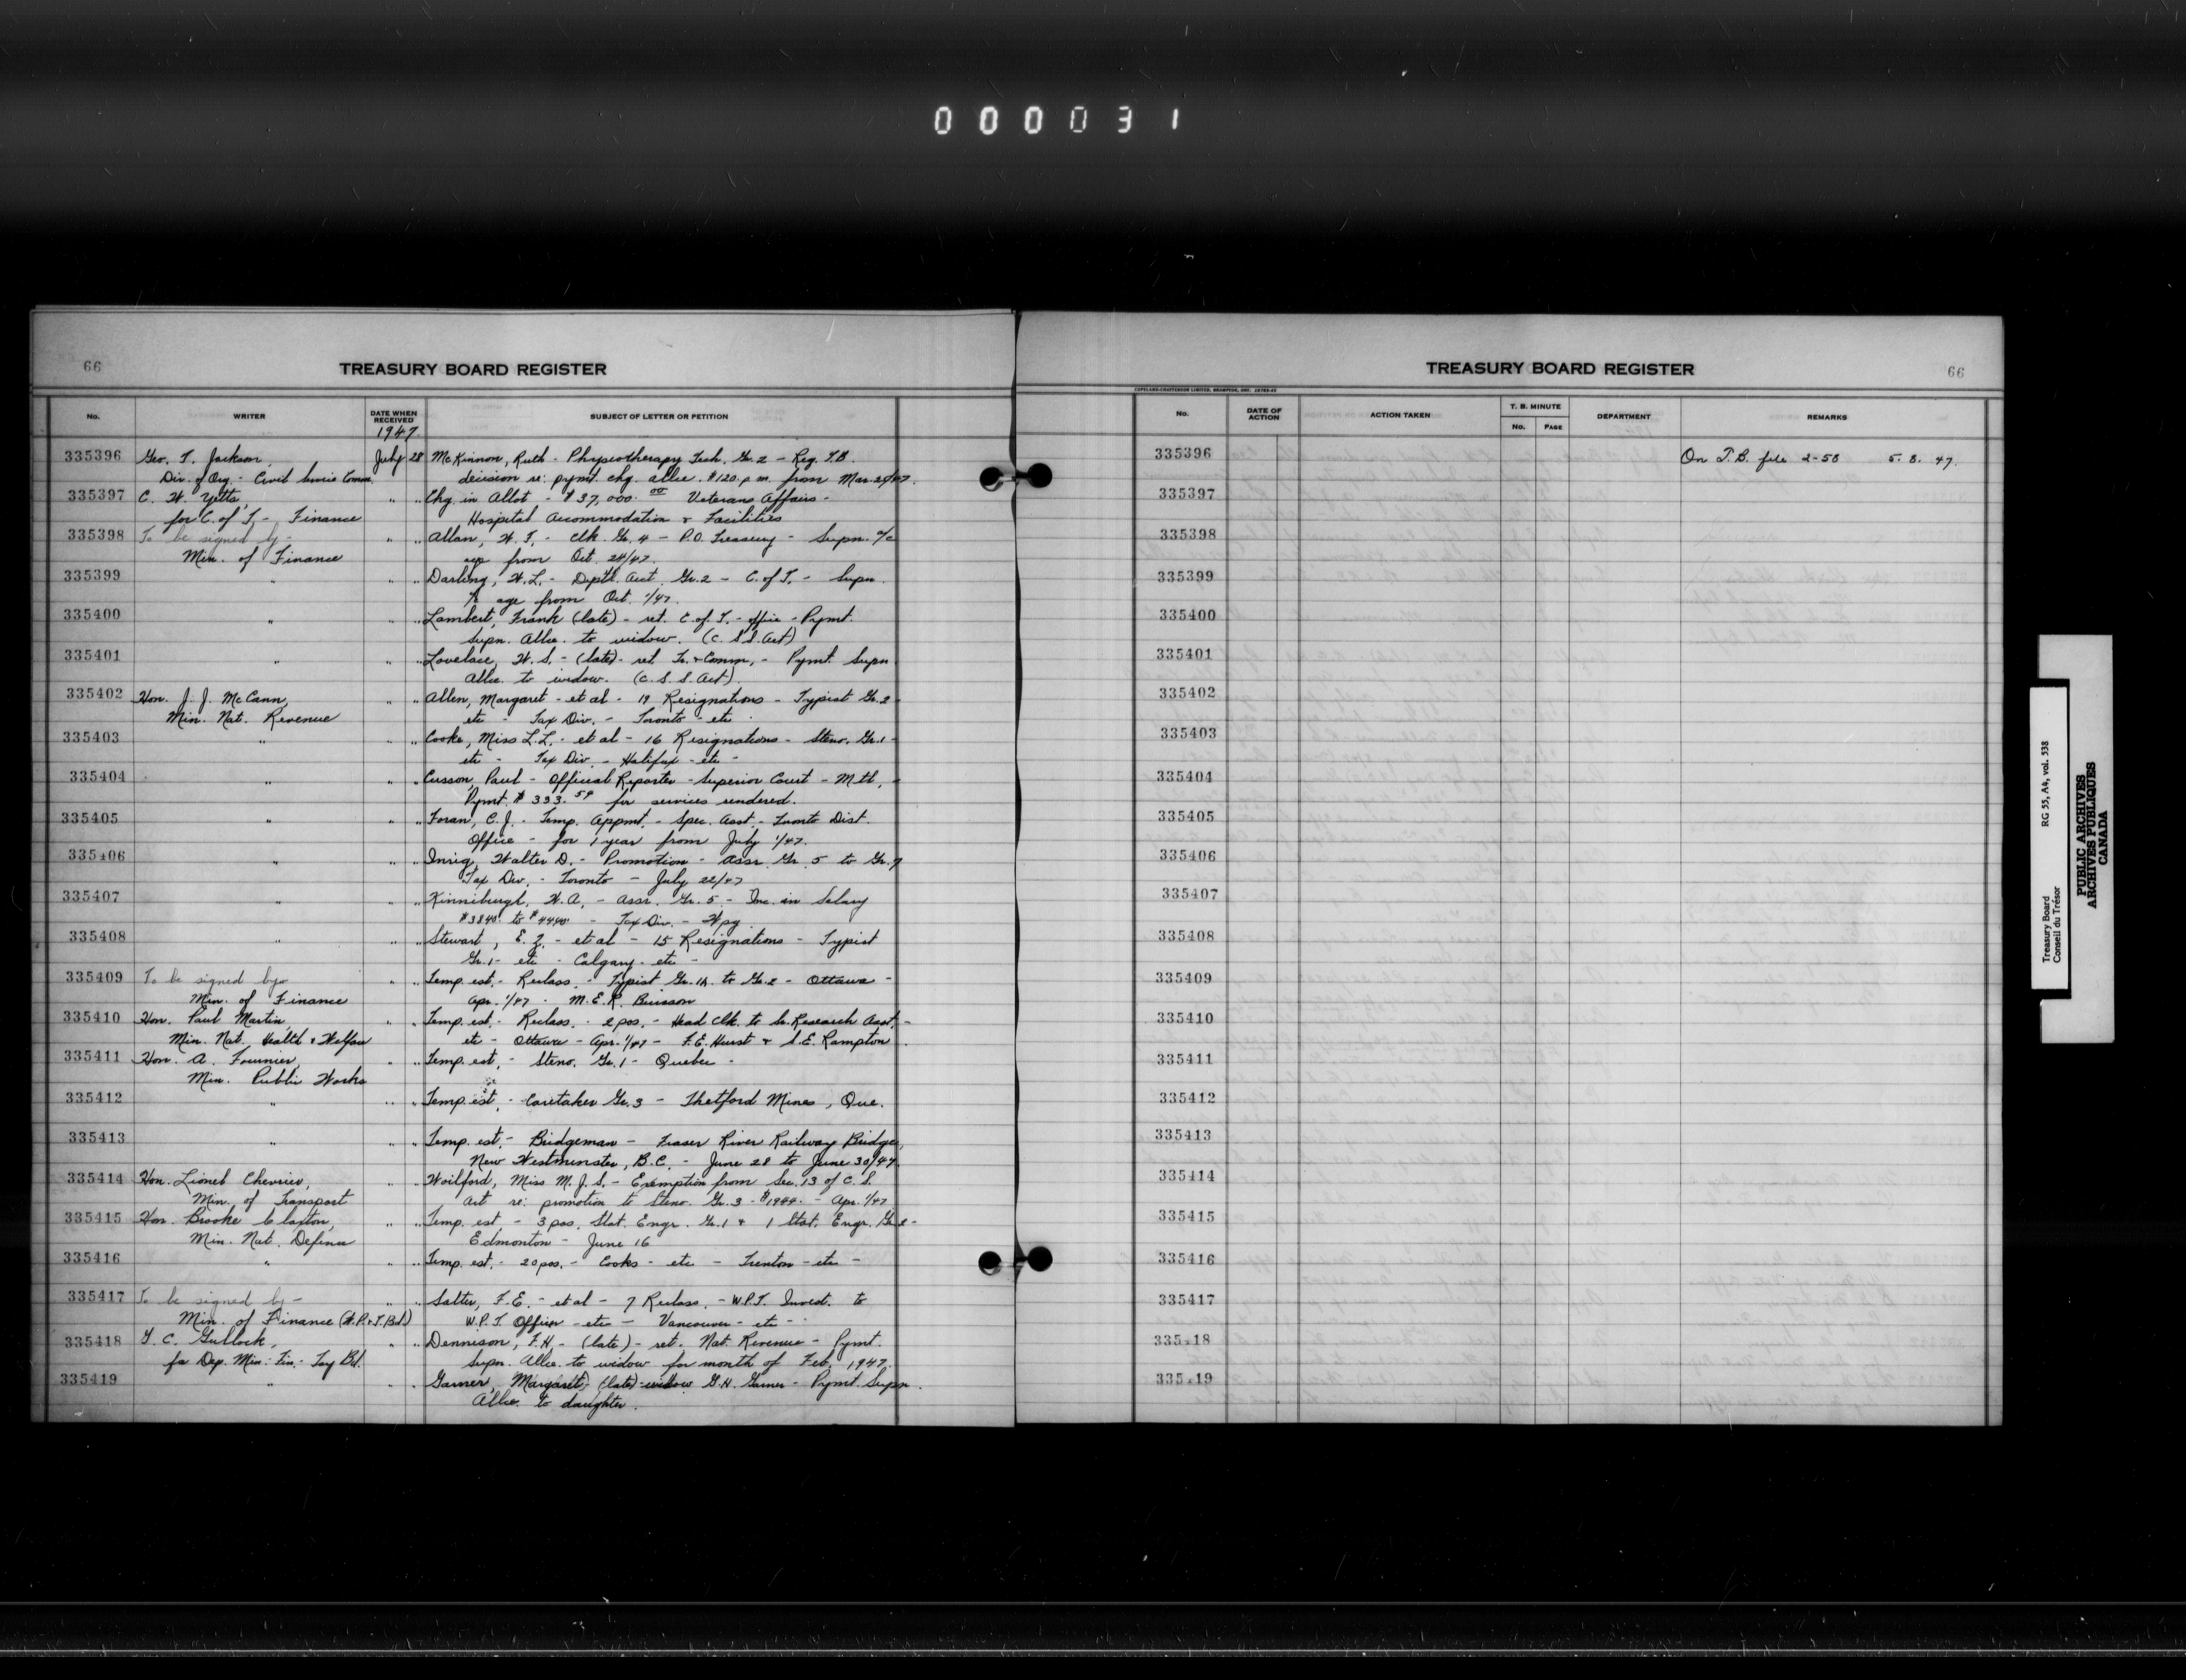 000031
66
TREASURY BOARD REGISTER
No. WRITER DATE WHEN RECEIVED SUBJECT OF LETTER OR PETITION
1947
335396 Geo. T. Jackson, July 28 McKinnon, Ruth - Physiotherapy Tech. Gr. 2 - Req. T.B.
Div. of Org. - Civil Service Comm. decision re: pymt. chg. allce. $120. p.m. from Mar.
335397 C. H. Yetts, " " Chg. in Allot - $37,000.00 Veterans Affairs -
for C. of T. - Finance Hospital Accommodation & Facilities
335398 To be signed by - " " Allan, H. T. - Clk. Gr. 4 - P.O. Treasury - Supn. a/c
Min. of Finance age from Oct. 24/47.
335399 " " " Darling, H.L. - Deptl. Acct. Gr. 2 - C. of T. - Supn.
a/c age from Oct. 1/47.
335400 " " " Lambert, Frank (late) - ret. C. of T. - office - Pymt.
Supn. Allce. to widow. (C. S. S. Act)
335401 " " " Lovelace, H. S. - (late) - ret. Tr. & Comm. - Pymt. Supn.
Allce. to widow. (C. S. S. Act).
335402 Hon. J. J. McCann, " " Allen, Margaret - et al - 19 Resignations - Typist Gr. 2
Min. Nat. Revenue etc - Tax Div. - Toronto - etc
335403 " " " Cooke, Miss L.L. - et al - 16 Resignations - Steno. Gr. 1 -
etc - Tax Div. - Halifax - etc -
335404 " " " Cusson, Paul - Official Reporter - Superior Court - Mtl. -
Pymt. $333.59 for services rendered.
335405 " " " Foran, C. J. - Temp. Appmt. - Spec. Asst. - Toronto Dist.
Office - for 1 year from July 1/47.
335406 " " " Inrig, Walter D. - Promotion - Assr. Gr. 5 to Gr. 7
Tax Div. - Toronto - July 22/47
335407 " " " Kinniburgh, H. A. - Assr. Gr. 5 - Inc. in Salary
$3840. to $4440. - Tax Div. - Wpg.
335408 " " " Stewart, E. Z. - et al - 15 Resignations - Typist
Gr. 1 - etc - Calgary - etc -
335409 To be signed by - " " Temp. est. - Reclass. - Typist Gr. 1A to Gr. 2 - Ottawa -
Min. of Finance Apr. 1/47 - M. E. R. Buisson
335410 Hon. Paul Martin, " " Temp. est. - Reclass. - 2 pos. - Head Clk. to Sr. Research Asst. -
Min. Nat. Health & Welfare etc - Ottawa - Apr. 1/47 - F. E. Hurst & S. E. Rampton
335411 Hon. A. Fournier, " " Temp. est. - Steno. Gr. 1 - Quebec -
Min. Public Works
335412 " " " Temp. est. - Caretaker Gr. 3 - Thetford Mines, Que.
335413 " " " Temp. est. - Bridgeman - Fraser River Railway Bridge,
New Westminster, B.C. - June 28 to June 30/47
335414 Hon. Lionel Chevrier, " " Woilford, Miss M. J. S. - Exemption from Sec. 13 of C. S.
Min. of Transport Act re: promotion to Steno. Gr. 3 - - Apr. 1/47
335415 Hon. Brooke Claxton, " " Temp. est. - 3 pos. Stat. Engr. Gr. 1 & 1 Stat. Engr. Gr. 2 -
Min. Nat. Defence Edmonton - June 16
335416 " " " Temp. est. - 20 pos. - Cooks - etc - Trenton - etc -
335417 To be signed by - " " Salter, F. E. - et al - 7 Reclass. - W.P.T. Invest. to
Min. of Finance (W.P. & T. Bd.) W.P.T. Officer - etc - Vancouver - etc -
335418 " " Dennison, F. H. - (late) - ret. Nat. Revenue - Pymt.
for Dep. Min. Fin. - Supn. Allce. to widow for month of Feb. 1947.
335419 " " " Garner, Margaret, (late) - widow G. H. Garner - Pymt. Supn.
Allce. to daughter.
TREASURY BOARD REGISTER
66
COPELAND-CHATTERSON LIMITED, BRAMPTON, ONT.
No. DATE OF ACTION ACTION TAKEN T. B. MINUTE No. PAGE DEPARTMENT REMARKS
335396 On T.B. file 2-58 5. 8. 47.
335397
335398
335399
335400
335401
335402
335403
335404
335405
335406
335407
335408
335409
335410
335411
335412
335413
335414
335415
335416
335417
335418
335419
Treasury Board RG 55, A4, vol. 538
Conseil du Trésor
PUBLIC ARCHIVES
ARCHIVES PUBLIQUES
CANADA